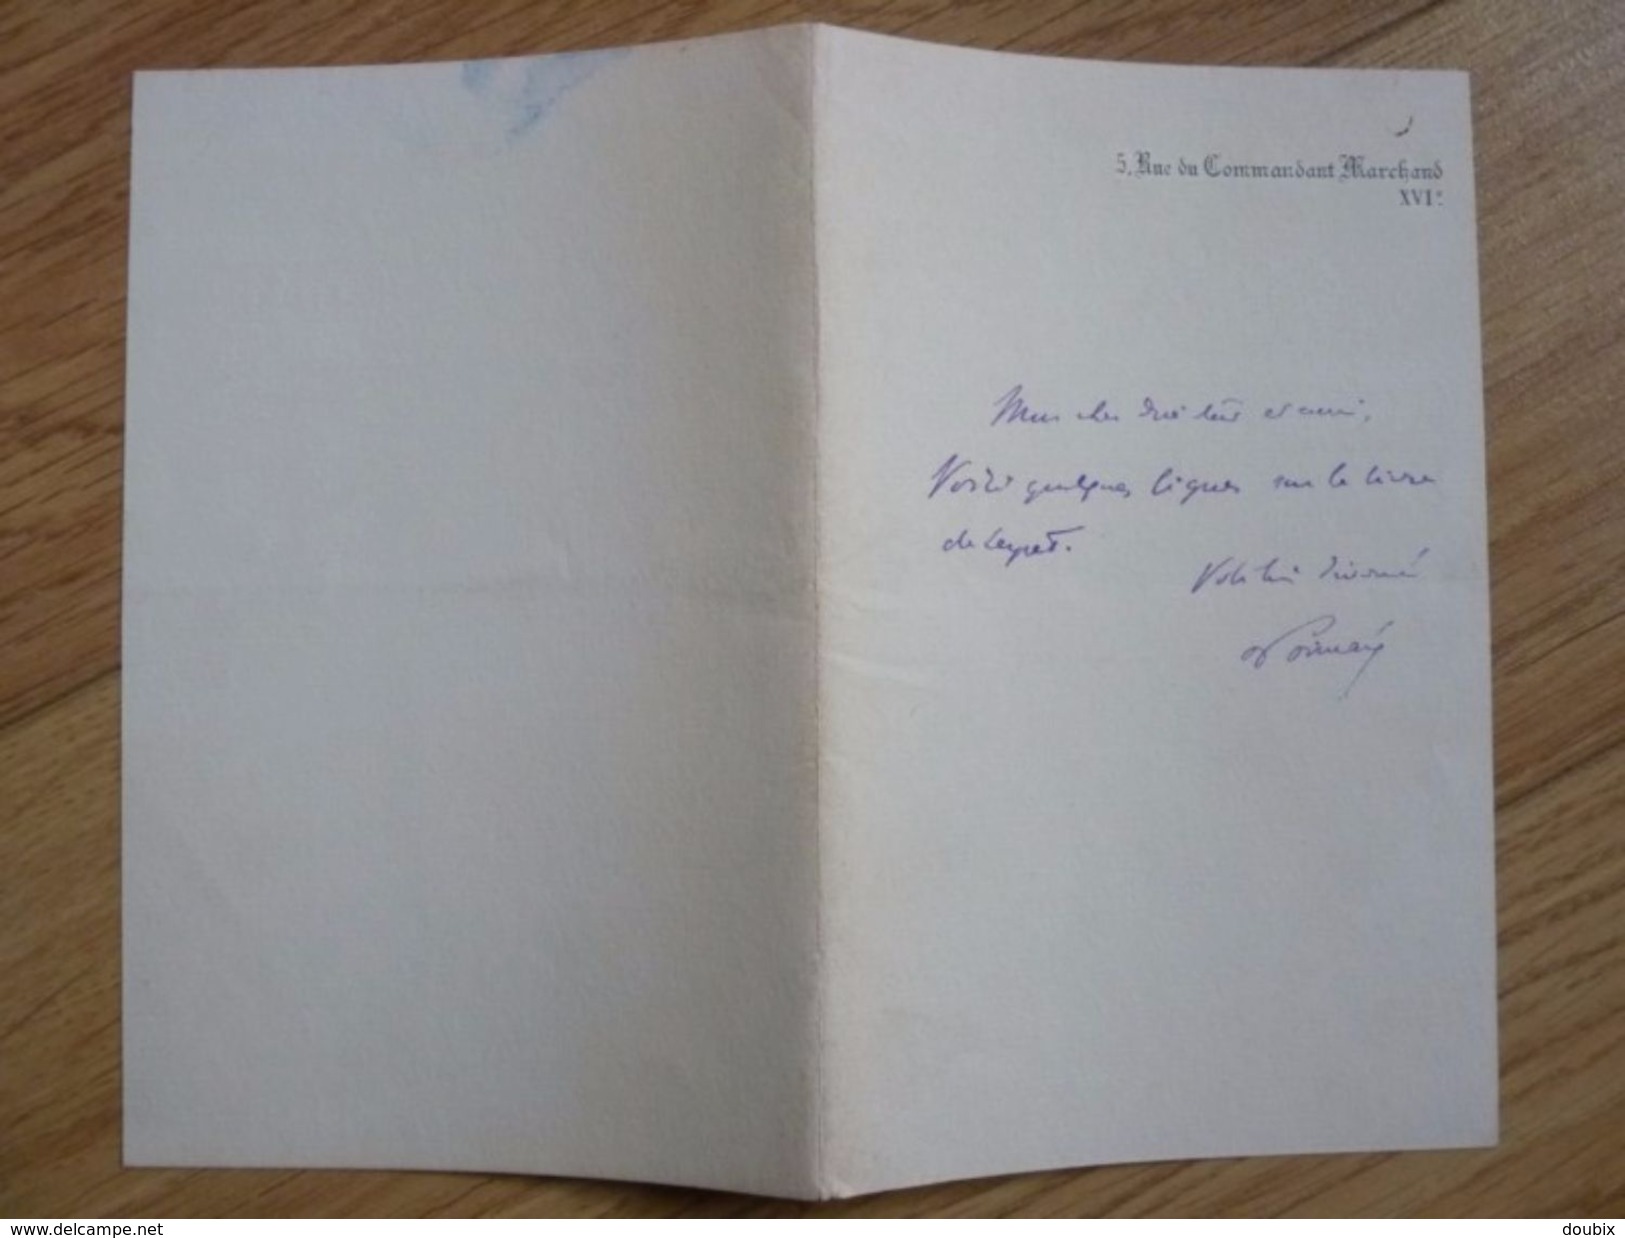 5, Rue du Commandant Marchand
XVIe
Mon cher directeur et ami,
Voici quelques lignes sur le livre
de Leyret.
Votre bien dévoué
RPoincaré
www.delcampe.net
doubix